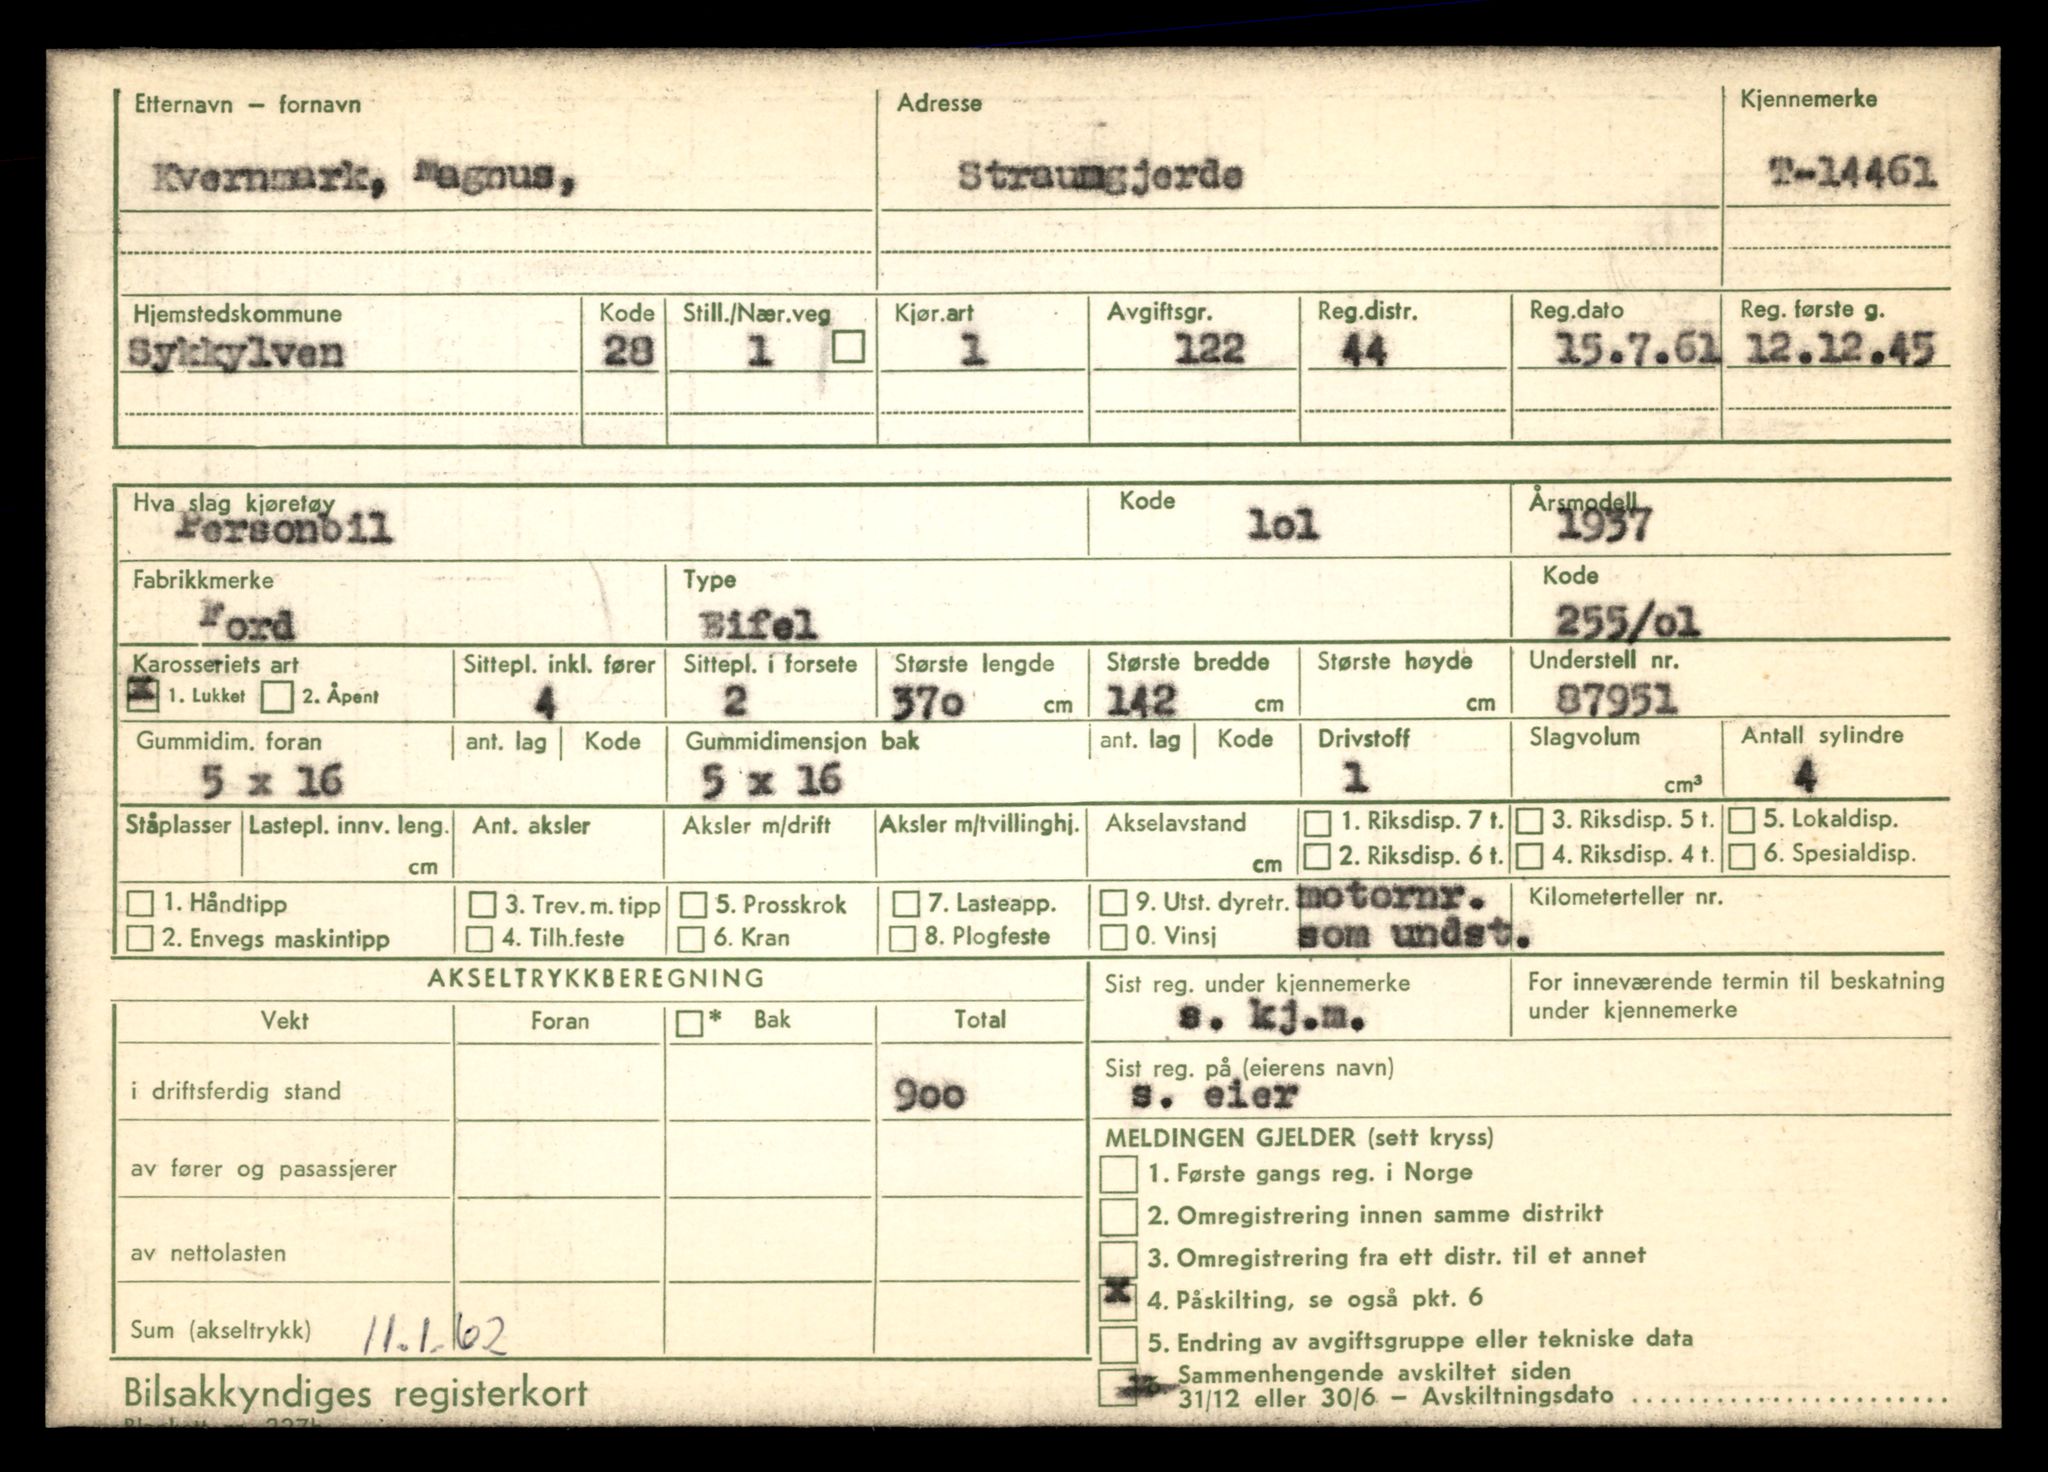 Etternavn – fornavn Adresse Kjennemerke
Kvernmark, Magnus, Straumgjerde T-14461
Hjemstedskommune Kode Still./Nær.veg Kjør.art Avgiftsgr. Reg.distr. Reg.dato Reg. første g.
Sykkylven 28 1 1 122 44 15.7.61 12.12.45
Hva slag kjøretøy Kode Årsmodell
Personbil lol 1937
Fabrikkmerke Type Kode
Ford Eifel 255/ol
Karosseriets art Sittepl. inkl. fører Sittepl. i forsete Største lengde Største bredde Største høyde Understell nr.
x 1. Lukket 2. Åpent 4 2 37o cm 142 cm cm 87951
Gummidim. foran ant. lag Kode Gummidimensjon bak ant. lag Kode Drivstoff Slagvolum Antall sylindre
5 x 16 5 x 16 1 cm³ 4
Ståplasser Lastepl. innv. leng. Ant. aksler Aksler m/drift Aksler m/tvillinghj. Akselavstand 1. Riksdisp. 7 t. 3. Riksdisp. 5 t. 5. Lokaldisp.
cm cm 2. Riksdisp. 6 t. 4. Riksdisp. 4 t. 6. Spesialdisp.
1. Håndtipp 3. Trev. m. tipp 5. Prosskrok 7. Lasteapp. 9. Utst. dyretr. motornr. Kilometerteller nr.
2. Envegs maskintipp 4. Tilh.feste 6. Kran 8. Plogfeste 0. Vinsj som undst.
AKSELTRYKKBEREGNING
Vekt Foran * Bak Total
i driftsferdig stand 9oo
av fører og pasassjerer
av nettolasten
Sum (akseltrykk) 11.1.62
Bilsakkyndiges registerkort
Sist reg. under kjennemerke For inneværende termin til beskatning
s. kj.m. under kjennemerke
Sist reg. på (eierens navn)
s. eier
MELDINGEN GJELDER (sett kryss)
1. Første gangs reg. i Norge
2. Omregistrering innen samme distrikt
3. Omregistrering fra ett distr. til et annet
x 4. Påskilting, se også pkt. 6
5. Endring av avgiftsgruppe eller tekniske data
Sammenhengende avskiltet siden
31/12 eller 30/6 – Avskiltningsdato ........................